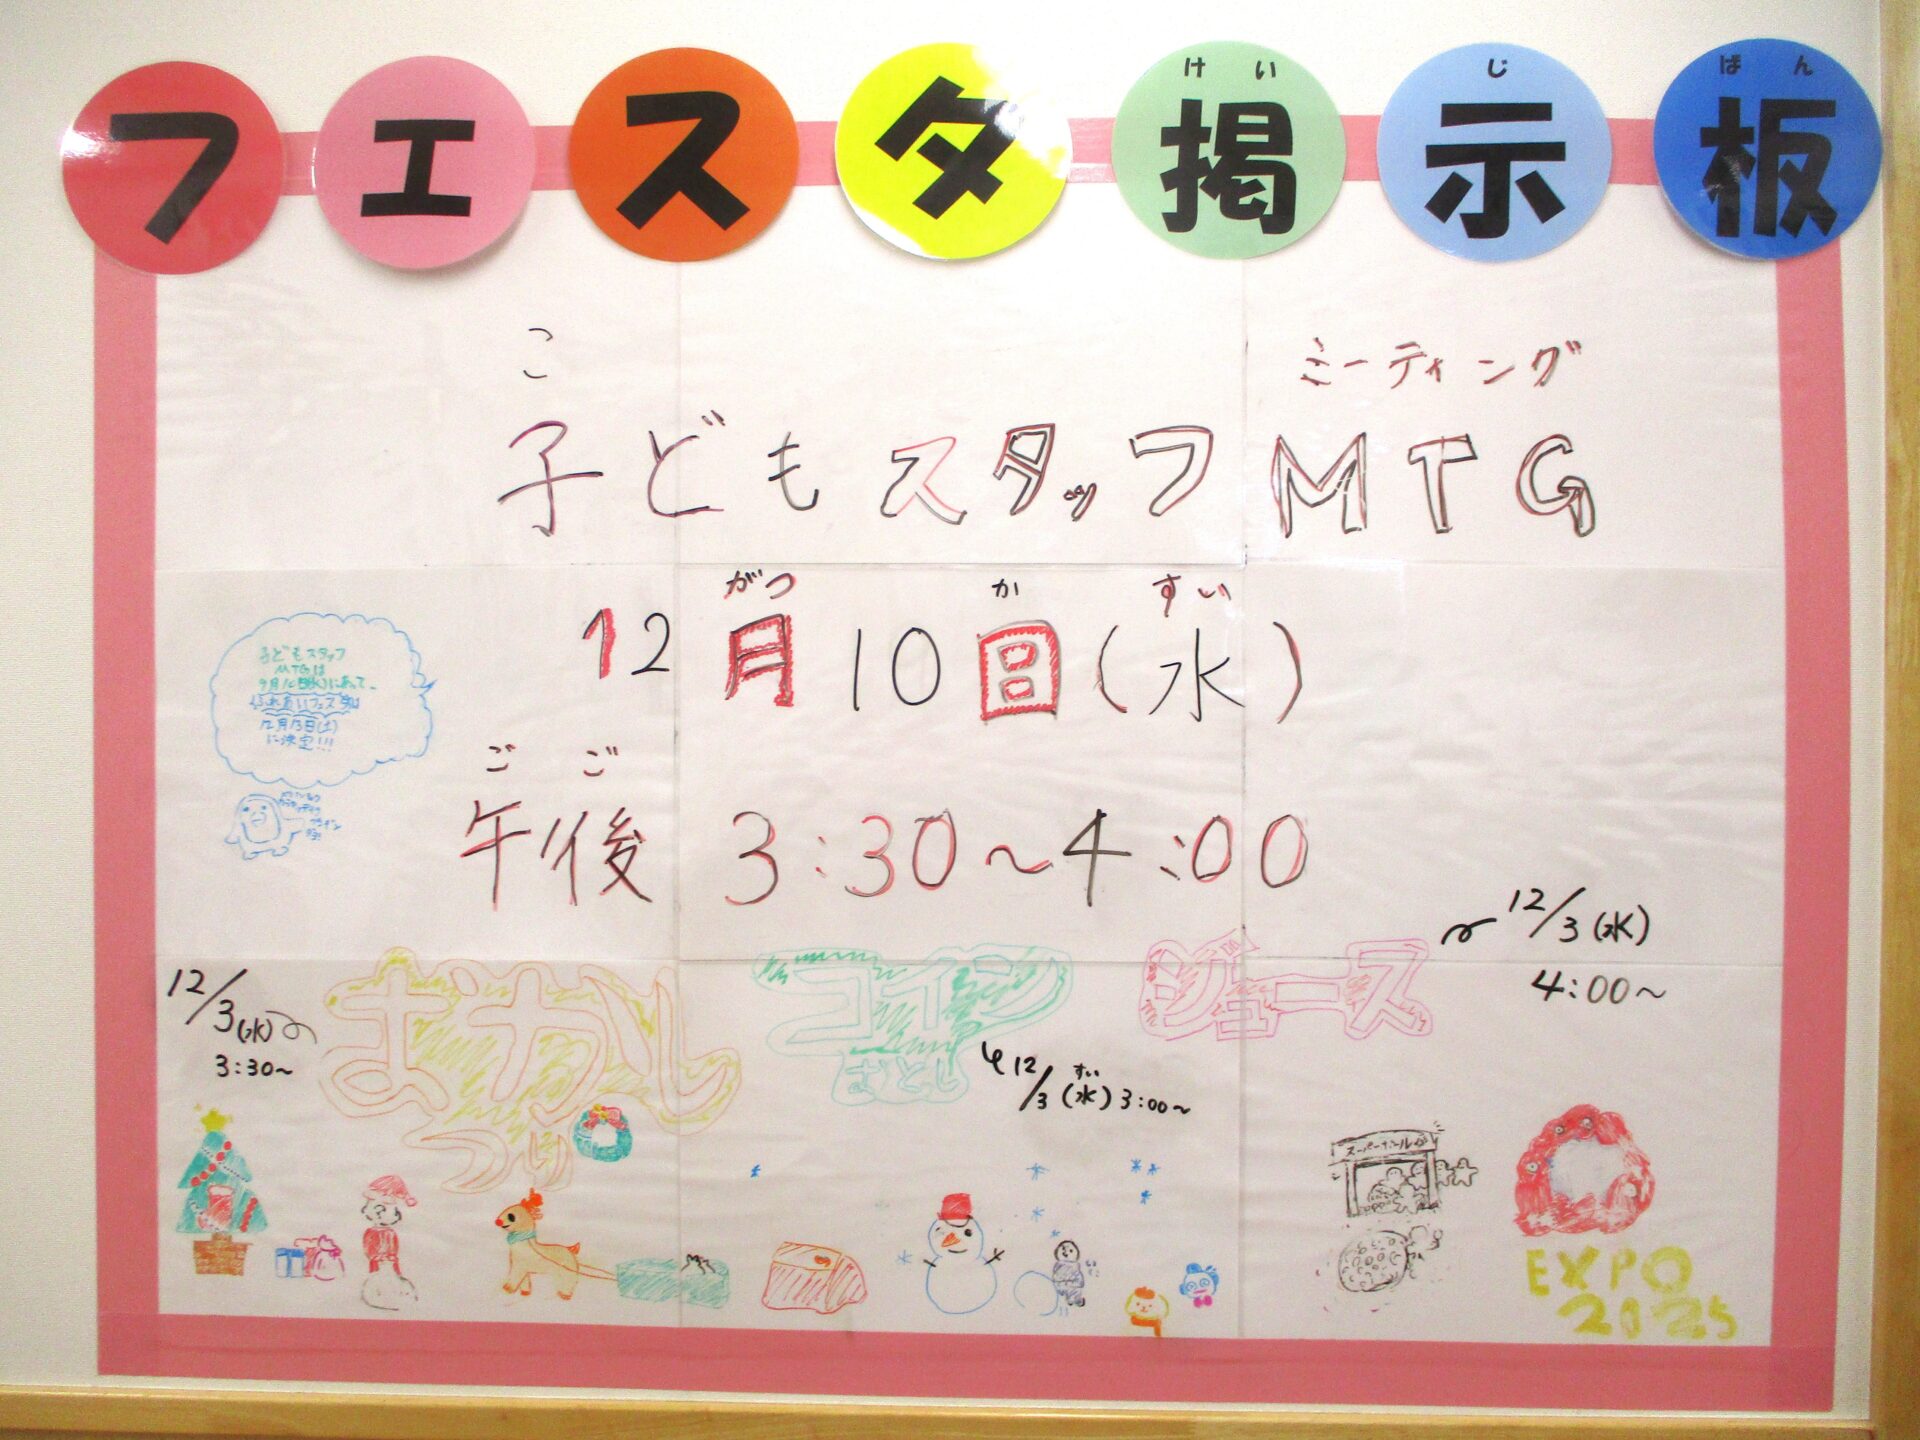 フェスタ掲示板
けいじばん
こ
ミーティング
子どもスタッフMTG
がつ か すい
12月10日(水)
ごご
午後 3:30～4:00
子どもスタッフ
MTGは
9月10日(水)にあって、
ふれあいフェスタは
12月13日(土)
に決定!!!
12/3(水)
3:30～
おかし
つり
コイン
おとし
12/3(水)3:00～
すい
ジュース
12/3(水)
4:00～
スーパーボール
EXPO
2025